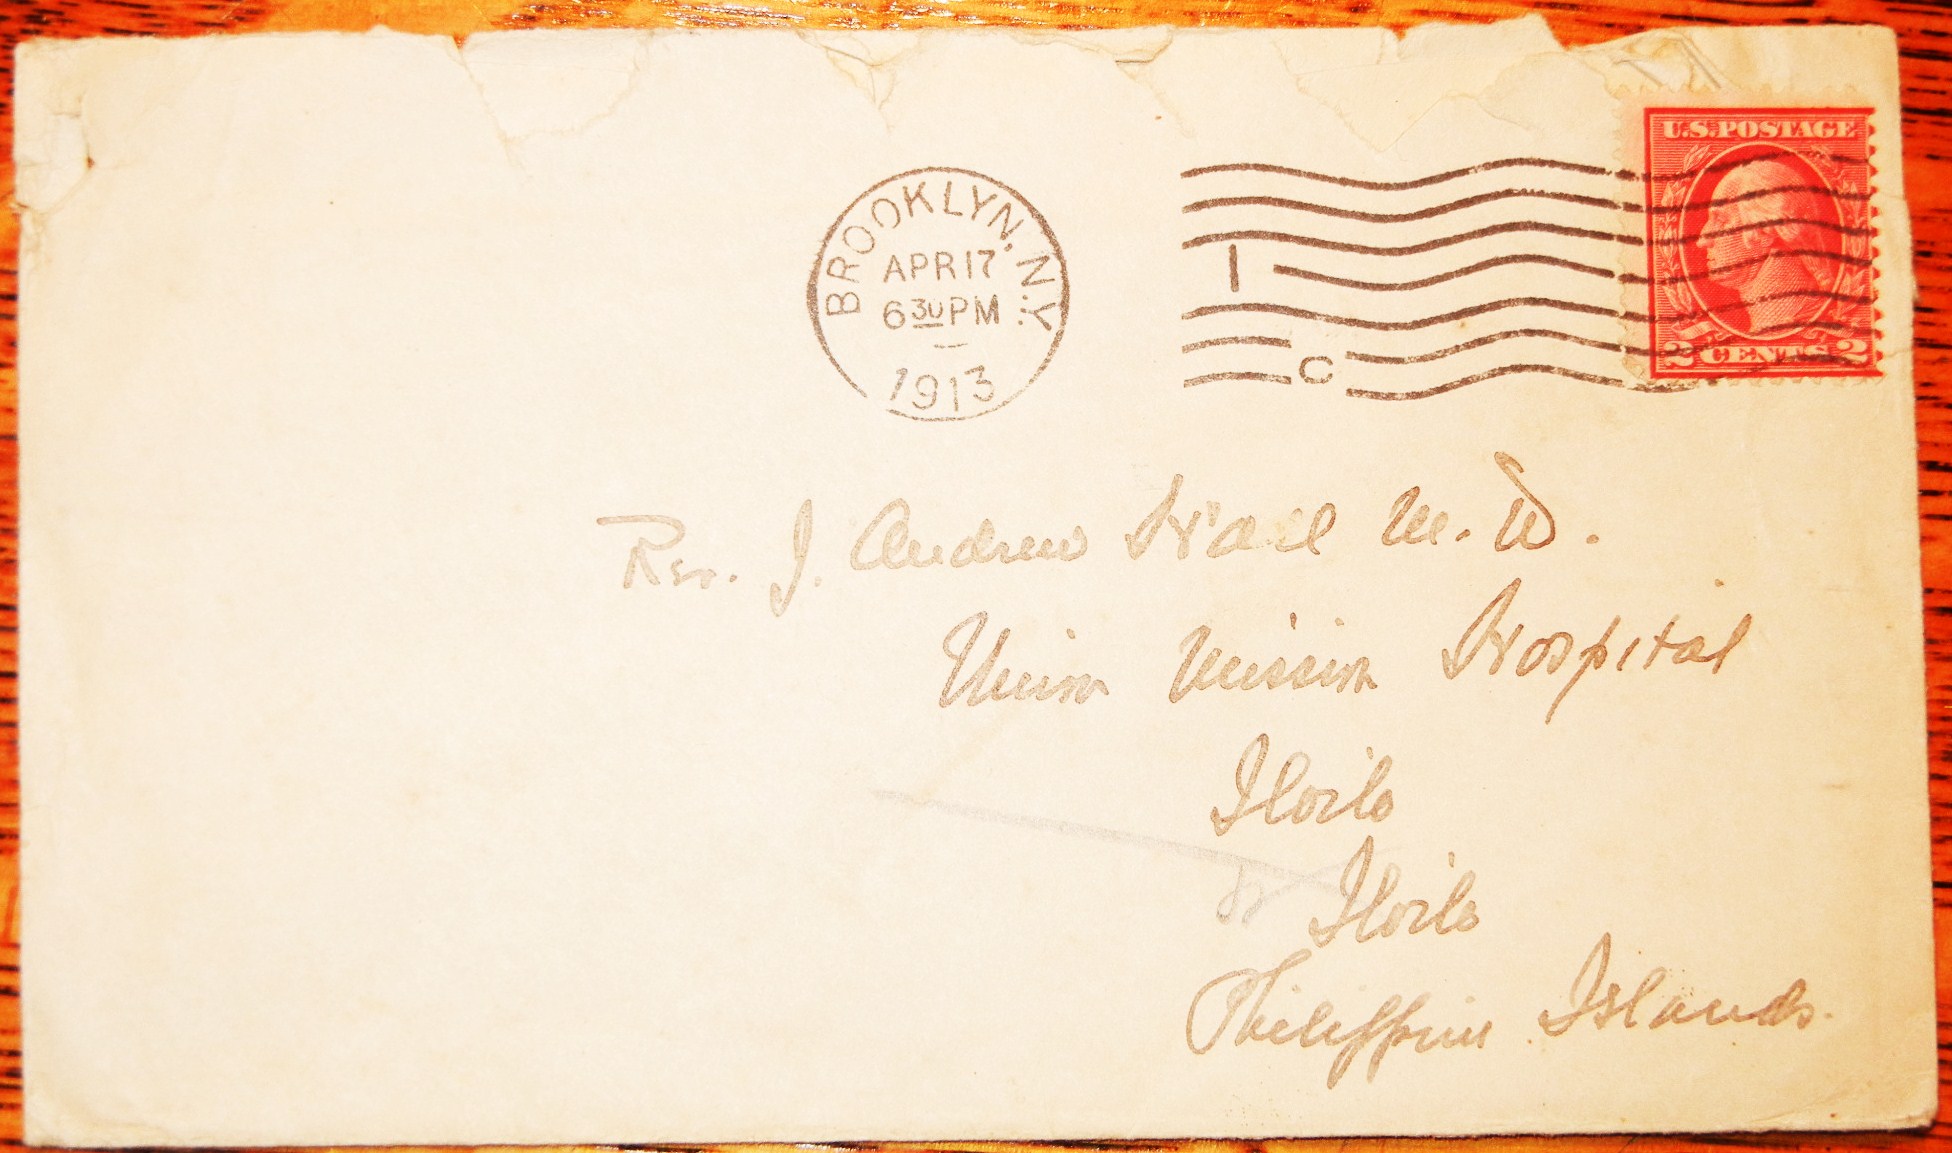 U.S. POSTAGE
2 CENTS 2
BROOKLYN, N.Y.
APR 17
6 30 PM
1913
1
C
Rev. J. Andrew Hall M. D.
Union Mission Hospital
Iloilo
Iloilo
Philippine Islands.